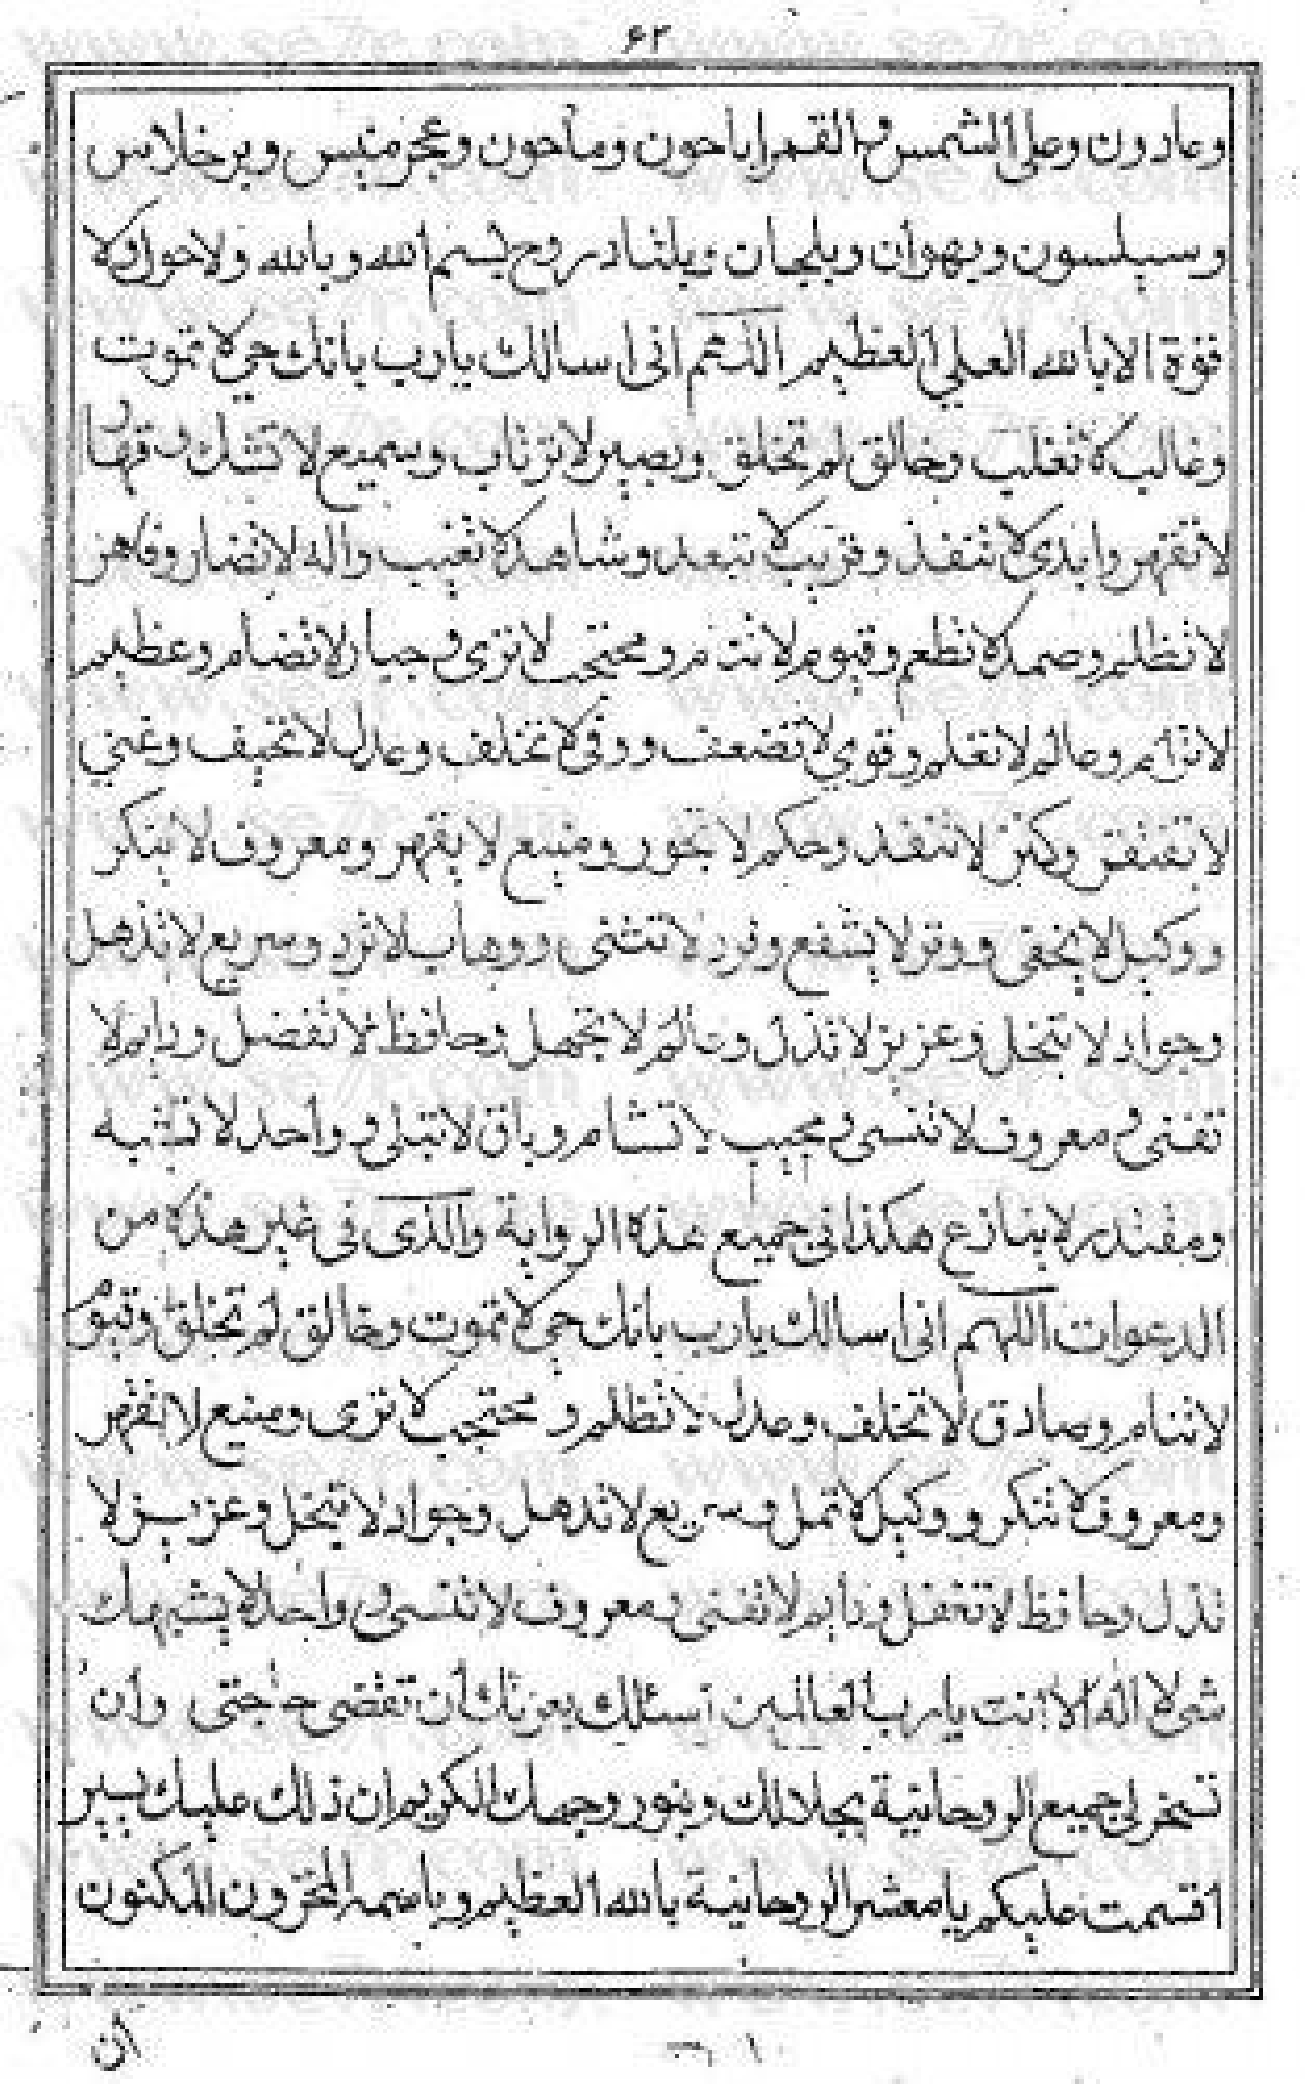 ٦٢
وعادون وعلى الشمس والقمر اباحون وماحون وعجرميس وبرخلاس
وسيلسون وبهوان ويليحان ويلثادروح بسم الله وبالله ولاحول ولا
قوة الا بالله العلي العظيم اللهم انى اسالك يارب بانك حي لا تموت
وغالب لا تغلب وخالق لم تخلق وبصير لا ترتاب وسميع لا تشك وقهار
لا تقهر وابدى لا تنفذ وقريب لا تبعد وشاهد لا تغيب واله لا تضار وقاهر
لا تظلم وصمد لا تطعم وقيوم لا تنام ومحتجب لا ترى وجبار لا تضام وعظيم
لا ترام وعالم لا تعلم وقوي لا تضعف ووفى لا تخلف وعدل لا تحيف وغني
لا تفتقر وكنز لا تنفد وحكم لا تجور ومنيع لا يقهر ومعروف لا ينكر
ووكيل لا يخفى ووتر لا يشفع وفرد لا تثنى ووهاب لا ترد وسريع لا تذهل
وجواد لا تبخل وعزيز لا تذل وعالم لا تجهل وحافظ لا تفضل ودايم لا
تفنى ومعروف لا تنسى ومجيب لا تسام وباق لا تبلى وواحد لا تشبه
ومقتدر لا ينازع هكذا في جميع هذه الرواية والذى فى غير هذه من
الدعوات اللهم انى اسالك يارب بانك حي لا تموت وخالق لم تخلق وقيوم
لا تنام وصادق لا تخلف وعدل لا تظلم ومحتجب لا ترى ومنيع لا تقهر
ومعروف لا تنكر ووكيل لا تمل وسريع لا تذهل وجواد لا تبخل وعزيز لا
تذل وحافظ لا تغفل ودايم لا تفنى ومعروف لا تنسى وواحد لا يشبهك
شئ لا اله الا انت يارب العالمين اسئلك بعزتك أن تقضى حاجتى وأن
تسخر لي جميع الروحانية بجلالك وبنور وجهك الكريم ان ذلك عليك يسير
اقسمت عليكم يا معشر الروحانية بالله العظيم وباسمه المخزون المكنون
أن